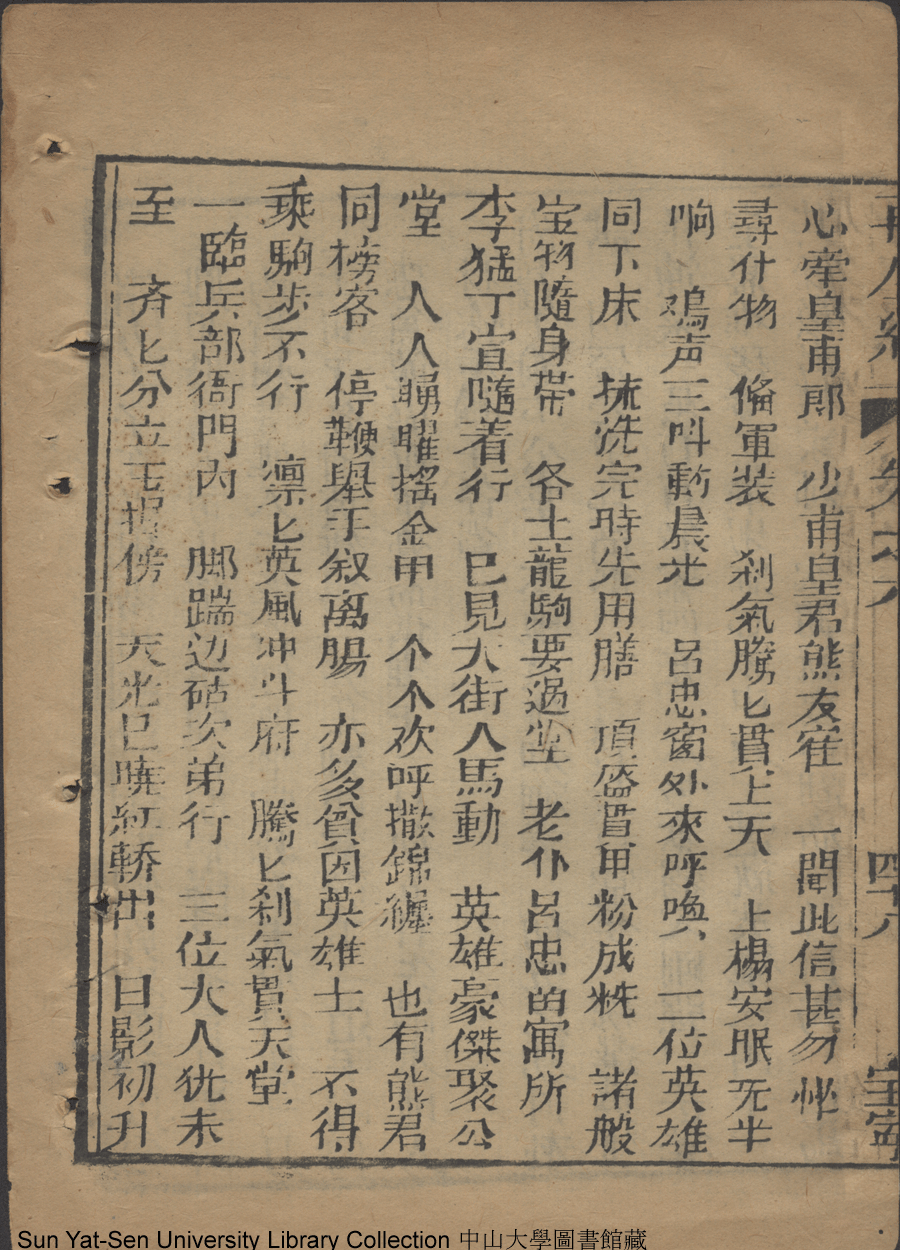 心牽皇甫郎　少甫皇君熊友崔　一聞此信甚勿忙
尋什物　俻軍装　刹氣騰匕貫上天　上榻安眠旡半
响　鳮声三呌動晨光　呂忠窗外來呼喚　二位英雄
同下床　梳洗完時先用膳　頂盔貫甲粉成粧　諸般
宝物隨身帶　各士龍駒要過堂　老仆呂忠的寓所
李猛丁宣隨着行　已見大街人馬動　英雄豪傑聚公
堂　人人曜搖金甲　个个欢呼撒錦纏　也有熊君
同榜客　停鞭舉手叙离腸　亦多貧因英雄士　不得
乘駒步不行　凛匕英風冲斗府　騰匕刹氣貫天堂
一臨兵部衙門內　脚踹边砧次弟行　三位大人犹未
至　斉匕分立王傍　天光已曉紅轎出　日影初升
四十八
Sun Yat-Sen University Library Collection 中山大學圖書館藏